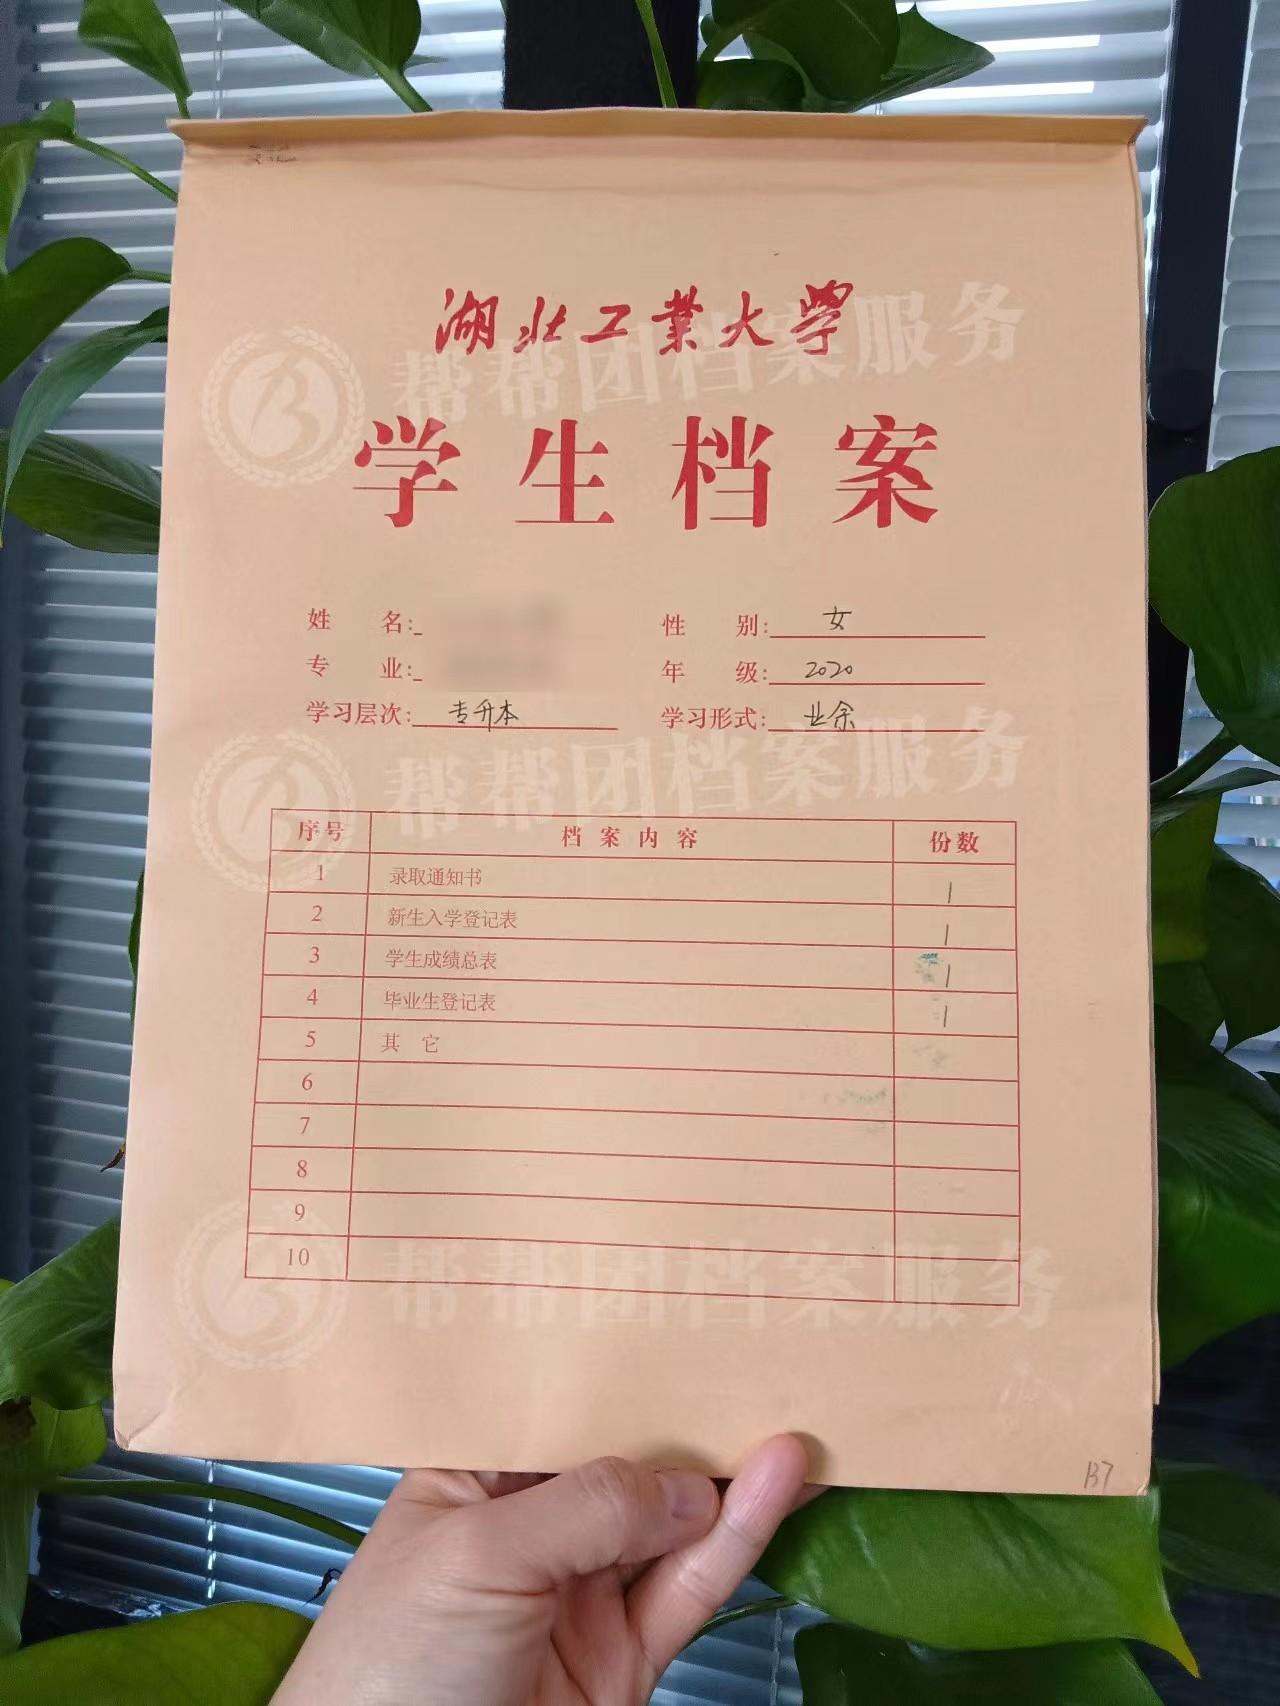 湖北工業大學
帮帮团档案服务
学生档案
姓名: 性别: 女
专业: 年级: 2020
学习层次: 专升本 学习形式: 业余
帮帮团档案服务
序号 档案内容 份数
1 录取通知书 1
2 新生入学登记表 1
3 学生成绩总表 1
4 毕业生登记表 1
5 其它
6
7
8
9
10
帮帮团档案服务
B7